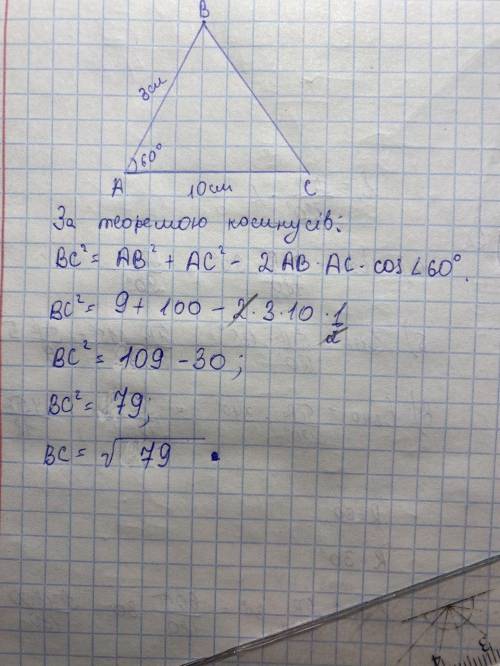 B
3см
60°
A
10см
C
За теоремою косинусів:
BC² = AB² + AC² - 2 AB · AC · cos ∠60°.
BC² = 9 + 100 - 2 · 3 · 10 · 1/2
BC² = 109 - 30;
BC² = 79;
BC = √79 .